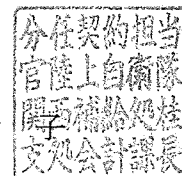 分任契約担当
官陸上自衛隊
関西補給処桂
支処会計課長
子